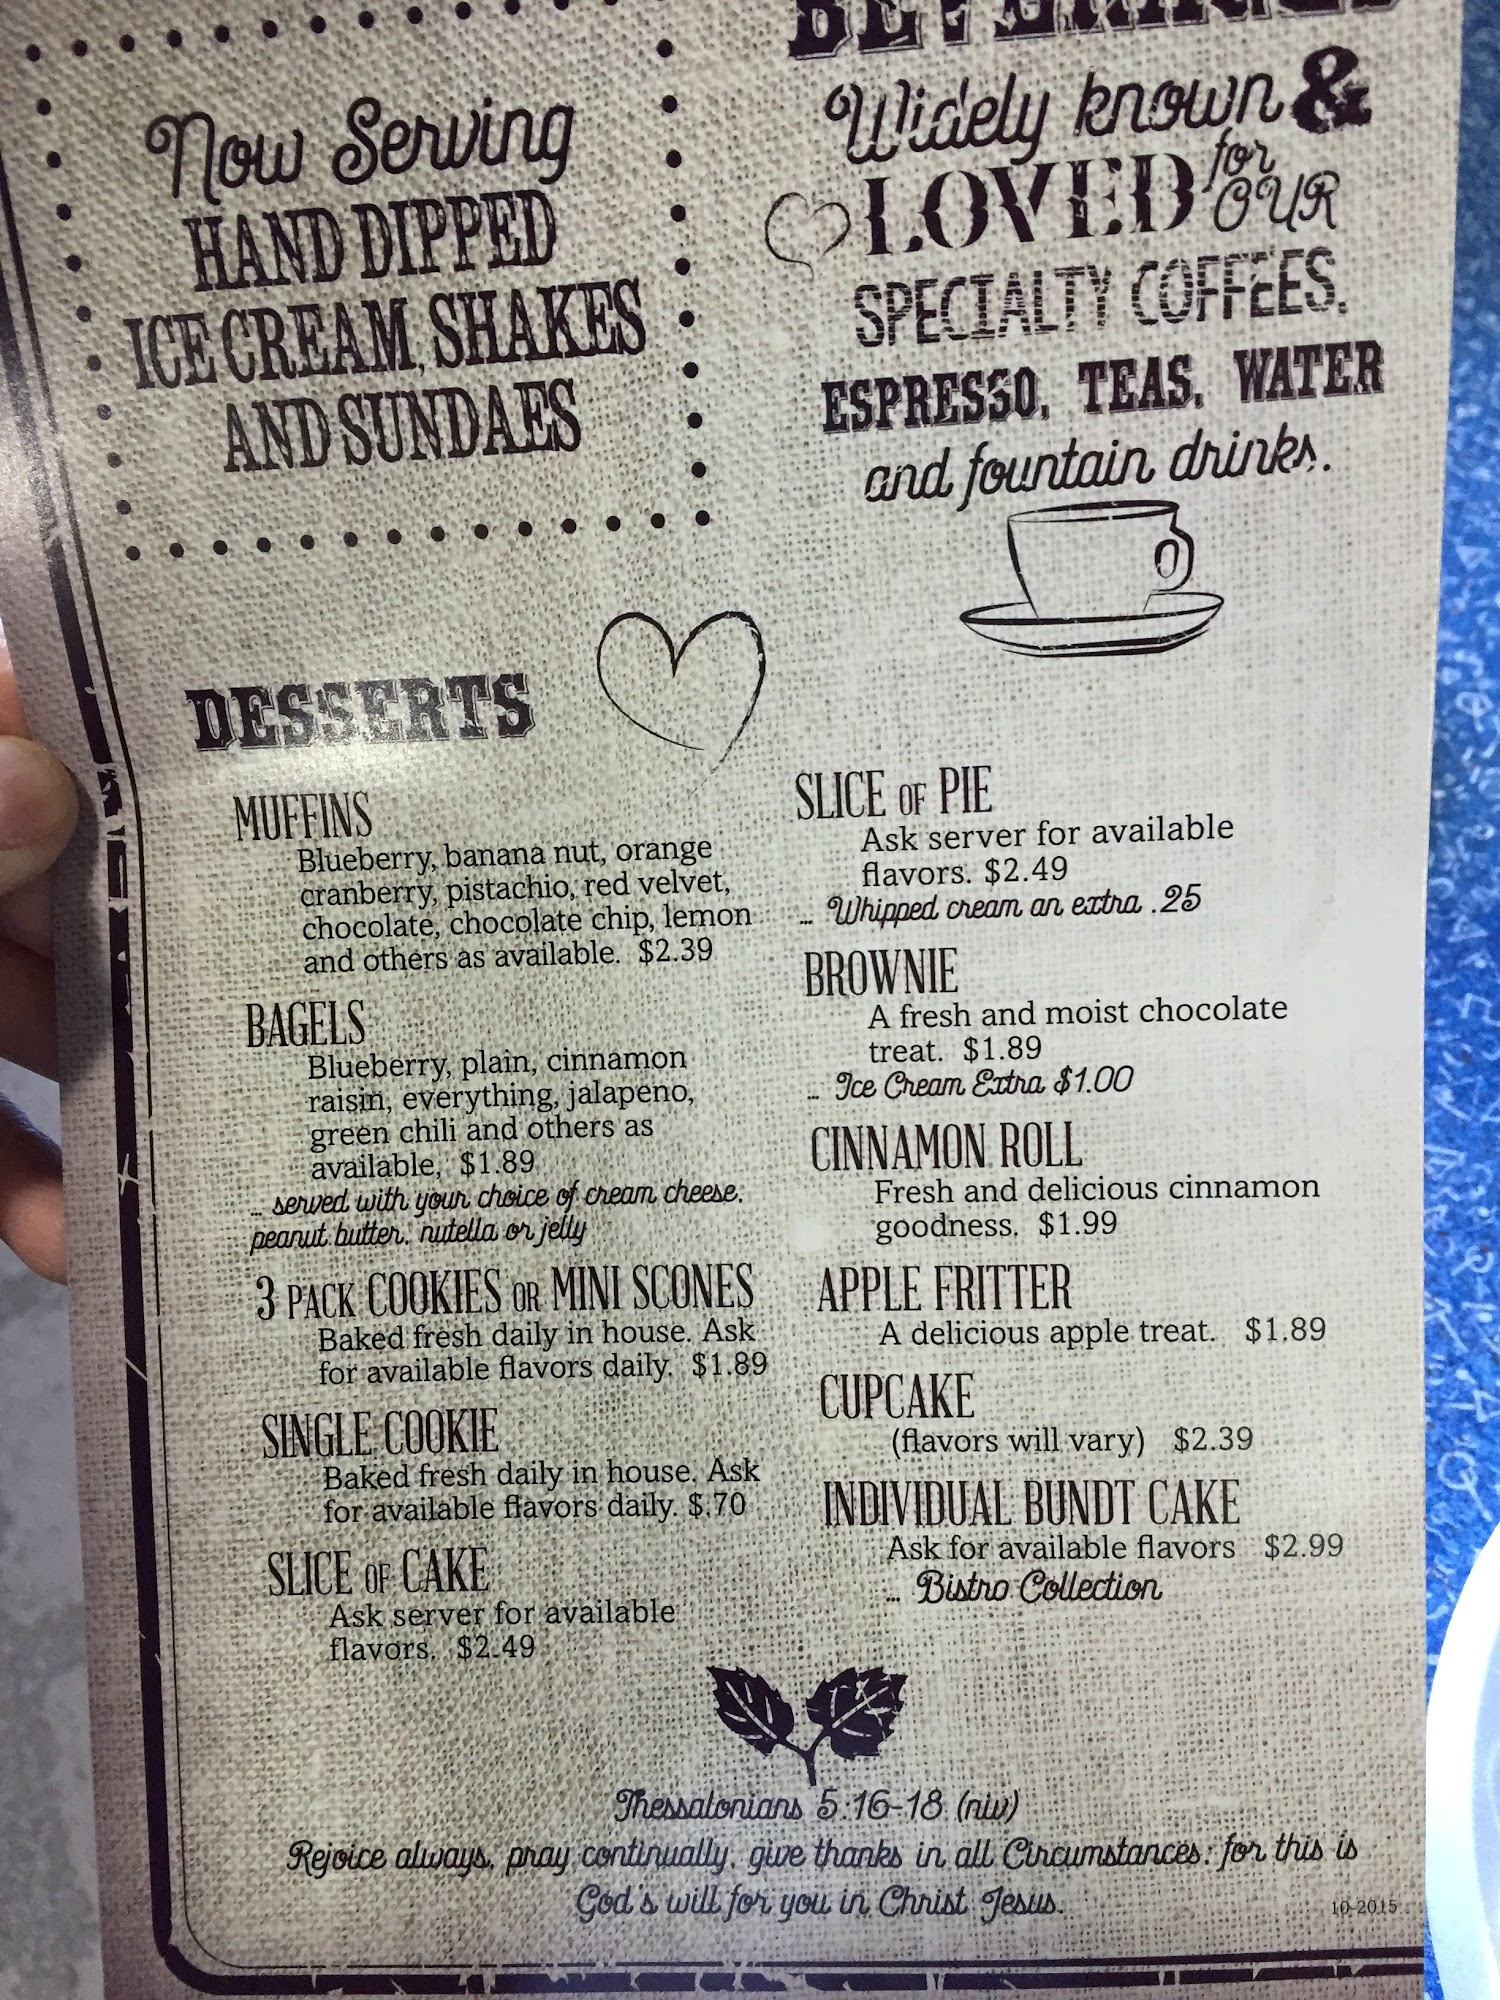 Now Serving
HAND DIPPED
ICE CREAM, SHAKES
AND SUNDAES
BEVERAGES
Widely known &
LOVED for
OUR
SPECIALTY COFFEES,
ESPRESSO, TEAS, WATER
and fountain drinks.
DESSERTS
MUFFINS
Blueberry, banana nut, orange
cranberry, pistachio, red velvet,
chocolate, chocolate chip, lemon
and others as available. $2.39
BAGELS
Blueberry, plain, cinnamon
raisin, everything, jalapeno,
green chili and others as
available, $1.89
... served with your choice of cream cheese,
peanut butter, nutella or jelly
3 PACK COOKIES OR MINI SCONES
Baked fresh daily in house. Ask
for available flavors daily. $1.89
SINGLE COOKIE
Baked fresh daily in house. Ask
for available flavors daily. $.70
SLICE OF CAKE
Ask server for available
flavors. $2.49
SLICE OF PIE
Ask server for available
flavors. $2.49
... Whipped cream an extra .25
BROWNIE
A fresh and moist chocolate
treat. $1.89
... Ice Cream Extra $1.00
CINNAMON ROLL
Fresh and delicious cinnamon
goodness. $1.99
APPLE FRITTER
A delicious apple treat. $1.89
CUPCAKE
(flavors will vary) $2.39
INDIVIDUAL BUNDT CAKE
Ask for available flavors $2.99
... Bistro Collection
Thessalonians 5:16-18 (niv)
Rejoice always, pray continually, give thanks in all Circumstances; for this is
God's will for you in Christ Jesus.
10-2015